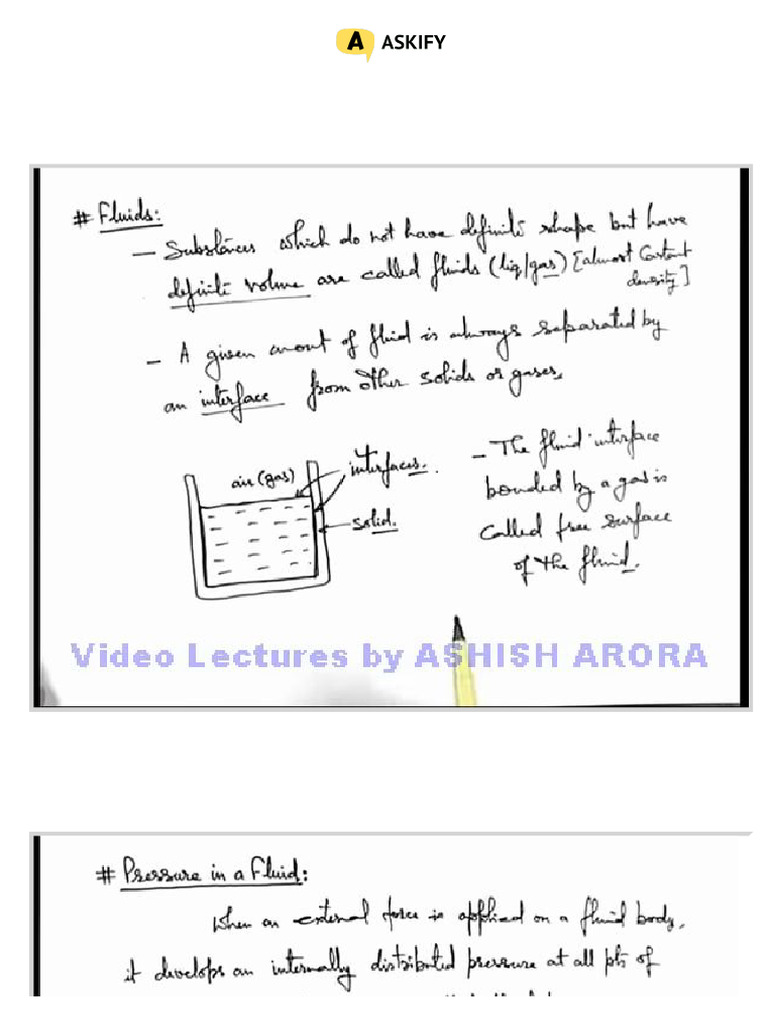 A ASKIFY
# Fluids:
— Substances which do not have definite shape but have
definite volume are called fluids (liq/gas) [almost Constant
density]
— A given amount of fluid is always separated by
an interface from other solids or gases.
air (gas)
interfaces.
solid.
— The fluid interface
bounded by a gas is
called free surface
of the fluid.
Video Lectures by ASHISH ARORA
# Pressure in a Fluid:
When an external force is applied on a fluid body,
it develops an internally distributed pressure at all pts of